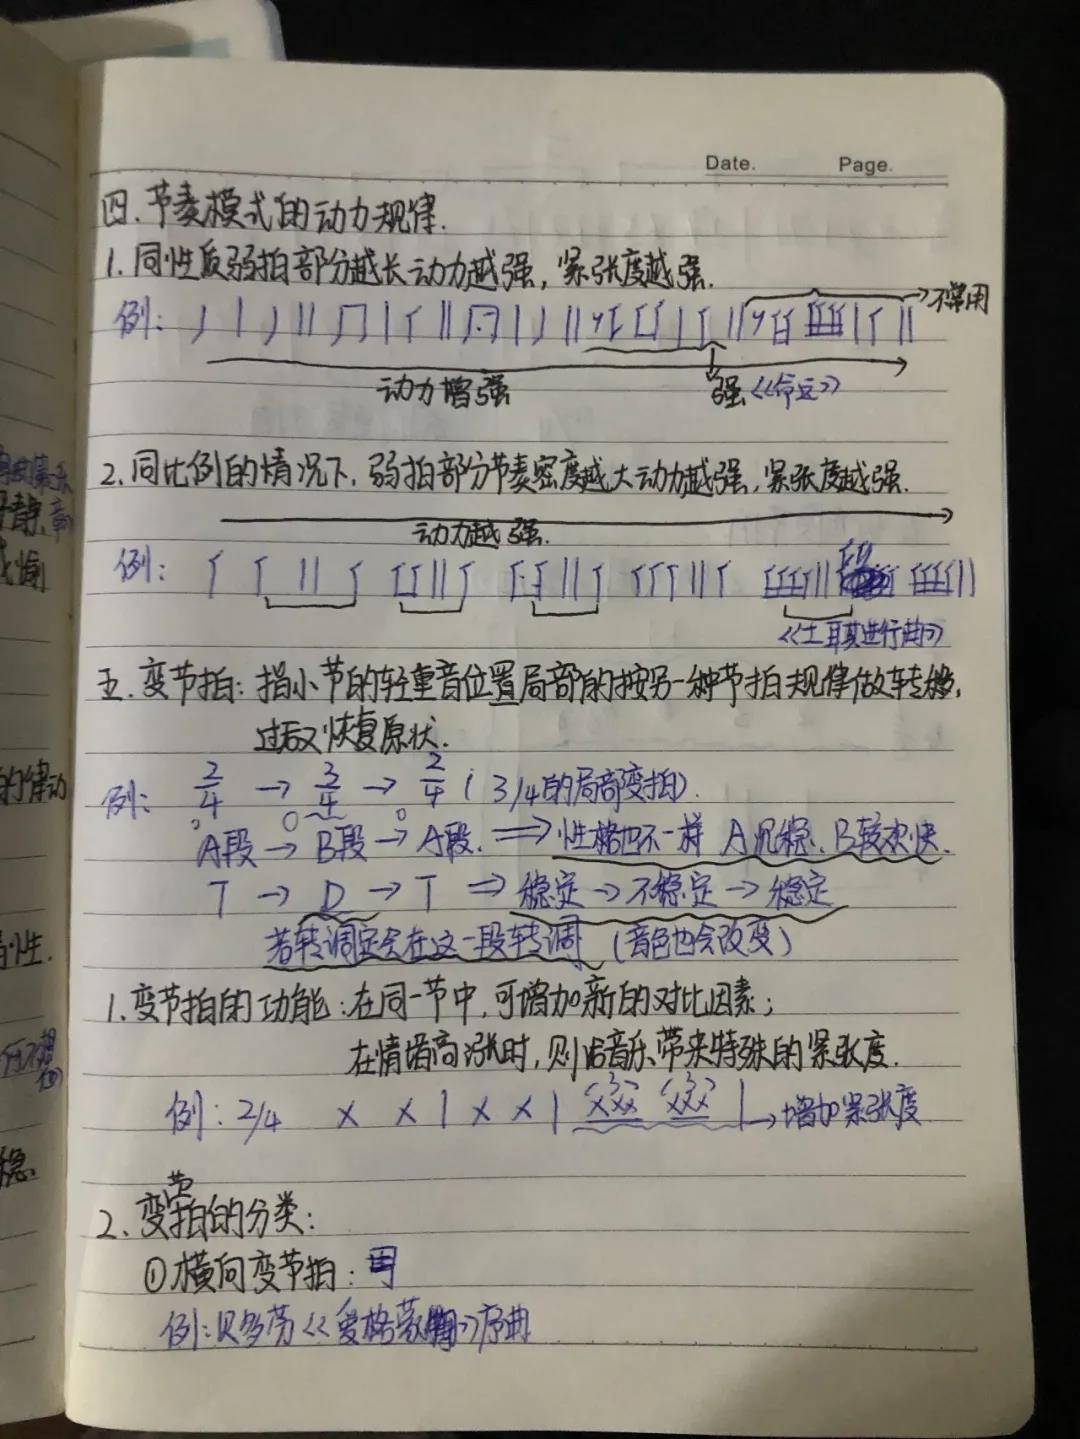 Date.    Page.
四.节奏模式的动力规律.
1.同性质弱拍部分越长动力越强,紧张度越强.
例:    →不常用
动力增强    强《命运》
2.同比例的情况下,弱拍部分节奏密度越大动力越强,紧张度越强.
动力越强.
例:
《土耳其进行曲》
五.变节拍:指小节的轻重音位置局部的按另一种节拍规律做转移,
过后又恢复原状.
例: 2/4 → 3/4 → 2/4 (3/4的局部变拍)
A段→B段→A段. ⇒性格也不一样 A沉稳、B较欢快.
T → D → T ⇒ 稳定→不稳定→稳定
若转调定会在这一段转调 (音色也会改变)
1.变节拍的功能:在同一节中,可增加新的对比因素;
在情绪高涨时,则给音乐带来特殊的紧张度.
例: 2/4 X X | X X | XXX XXX | →增加紧张度
2.变节拍的分类:
①横向变节拍:
例:贝多芬《爱格蒙特》序曲
平静
的律动
性.
稳.